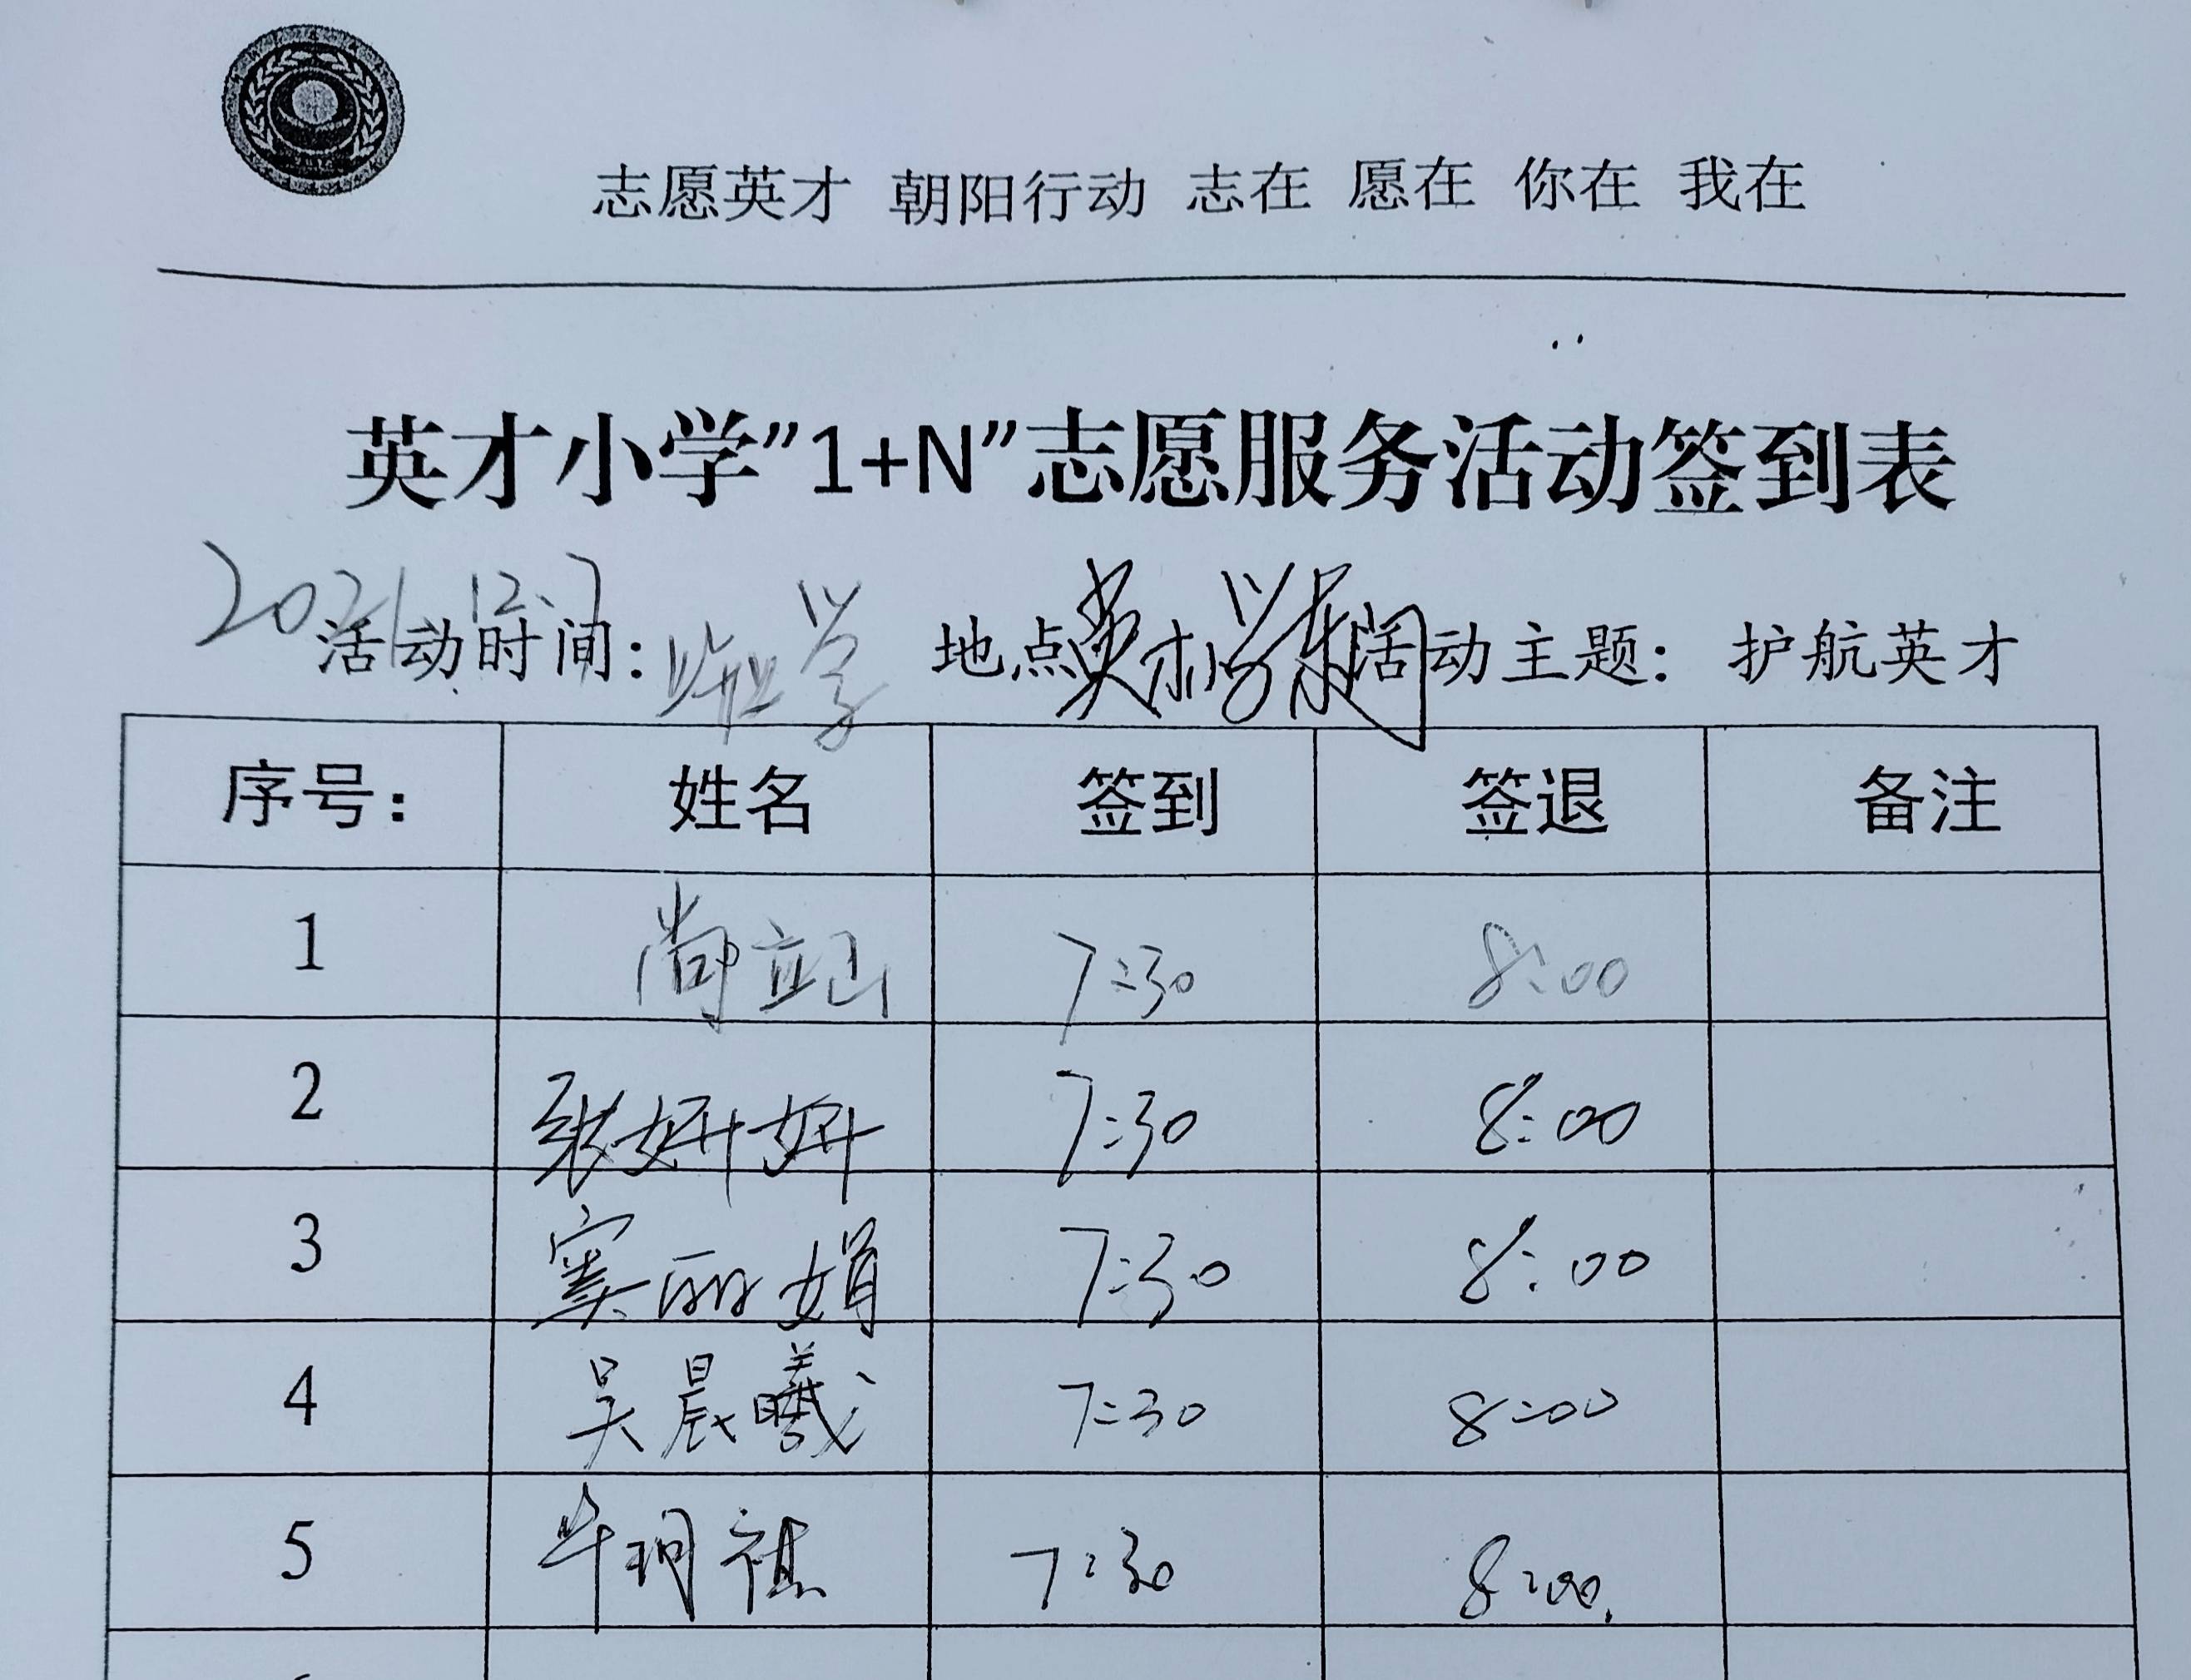 志愿英才 朝阳行动 志在 愿在 你在 我在
英才小学”1+N”志愿服务活动签到表
2021 12.7
活动时间: 毕业学 地点 英才小学东门 活动主题: 护航英才
序号: 姓名 签到 签退 备注
1 尚立 7:30 8:00
2 张妍妍 7:30 8:00
3 窦丽娟 7:30 8:00
4 吴晨曦 7:30 8:00
5 毕玥祺 7:30 8:00